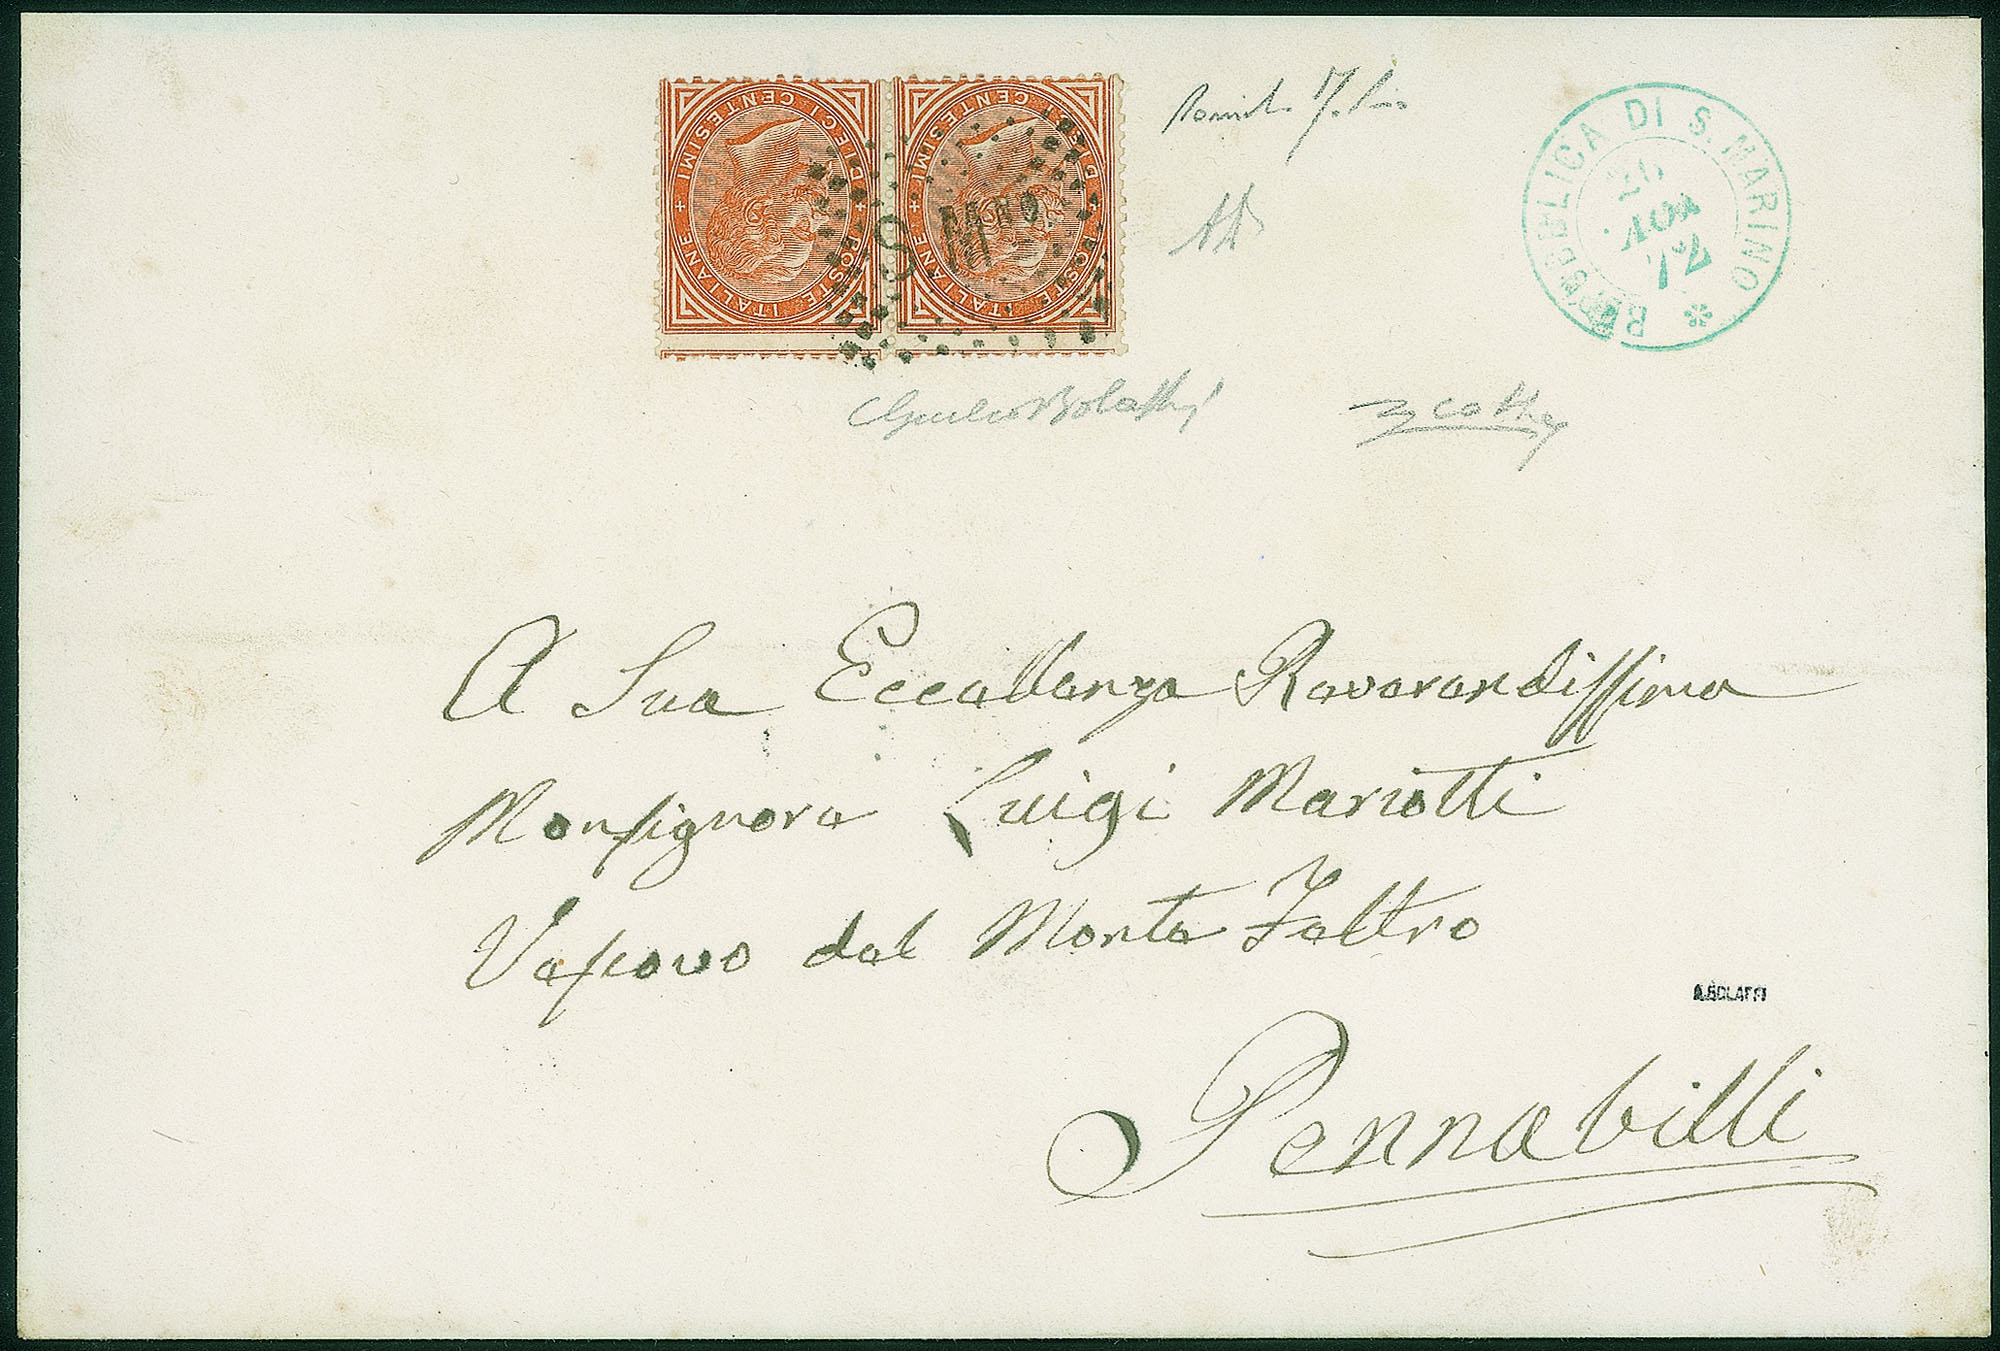 POSTE ITALIANE + DIECI CENTESIMI +
POSTE ITALIANE + DIECI CENTESIMI +
S MNO
REPUBBLICA DI S. MARINO
26
NOV
72
Giulio Bolaffi
A Sua Eccellenza Reverendissima
Monsignore Luigi Mariotti
Vescovo del Monte Feltro
A.BOLAFFI
Pennabilli